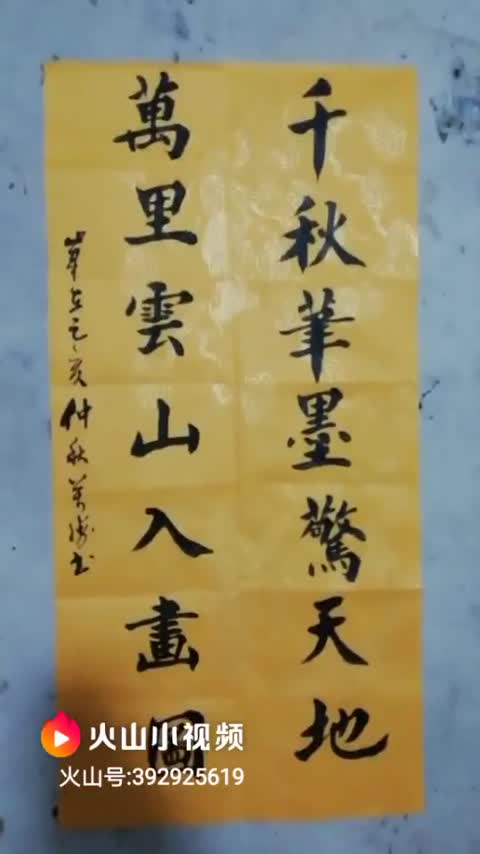 千秋筆墨驚天地
萬里雲山入畫圖
仲秋
火山小视频
火山号:392925619